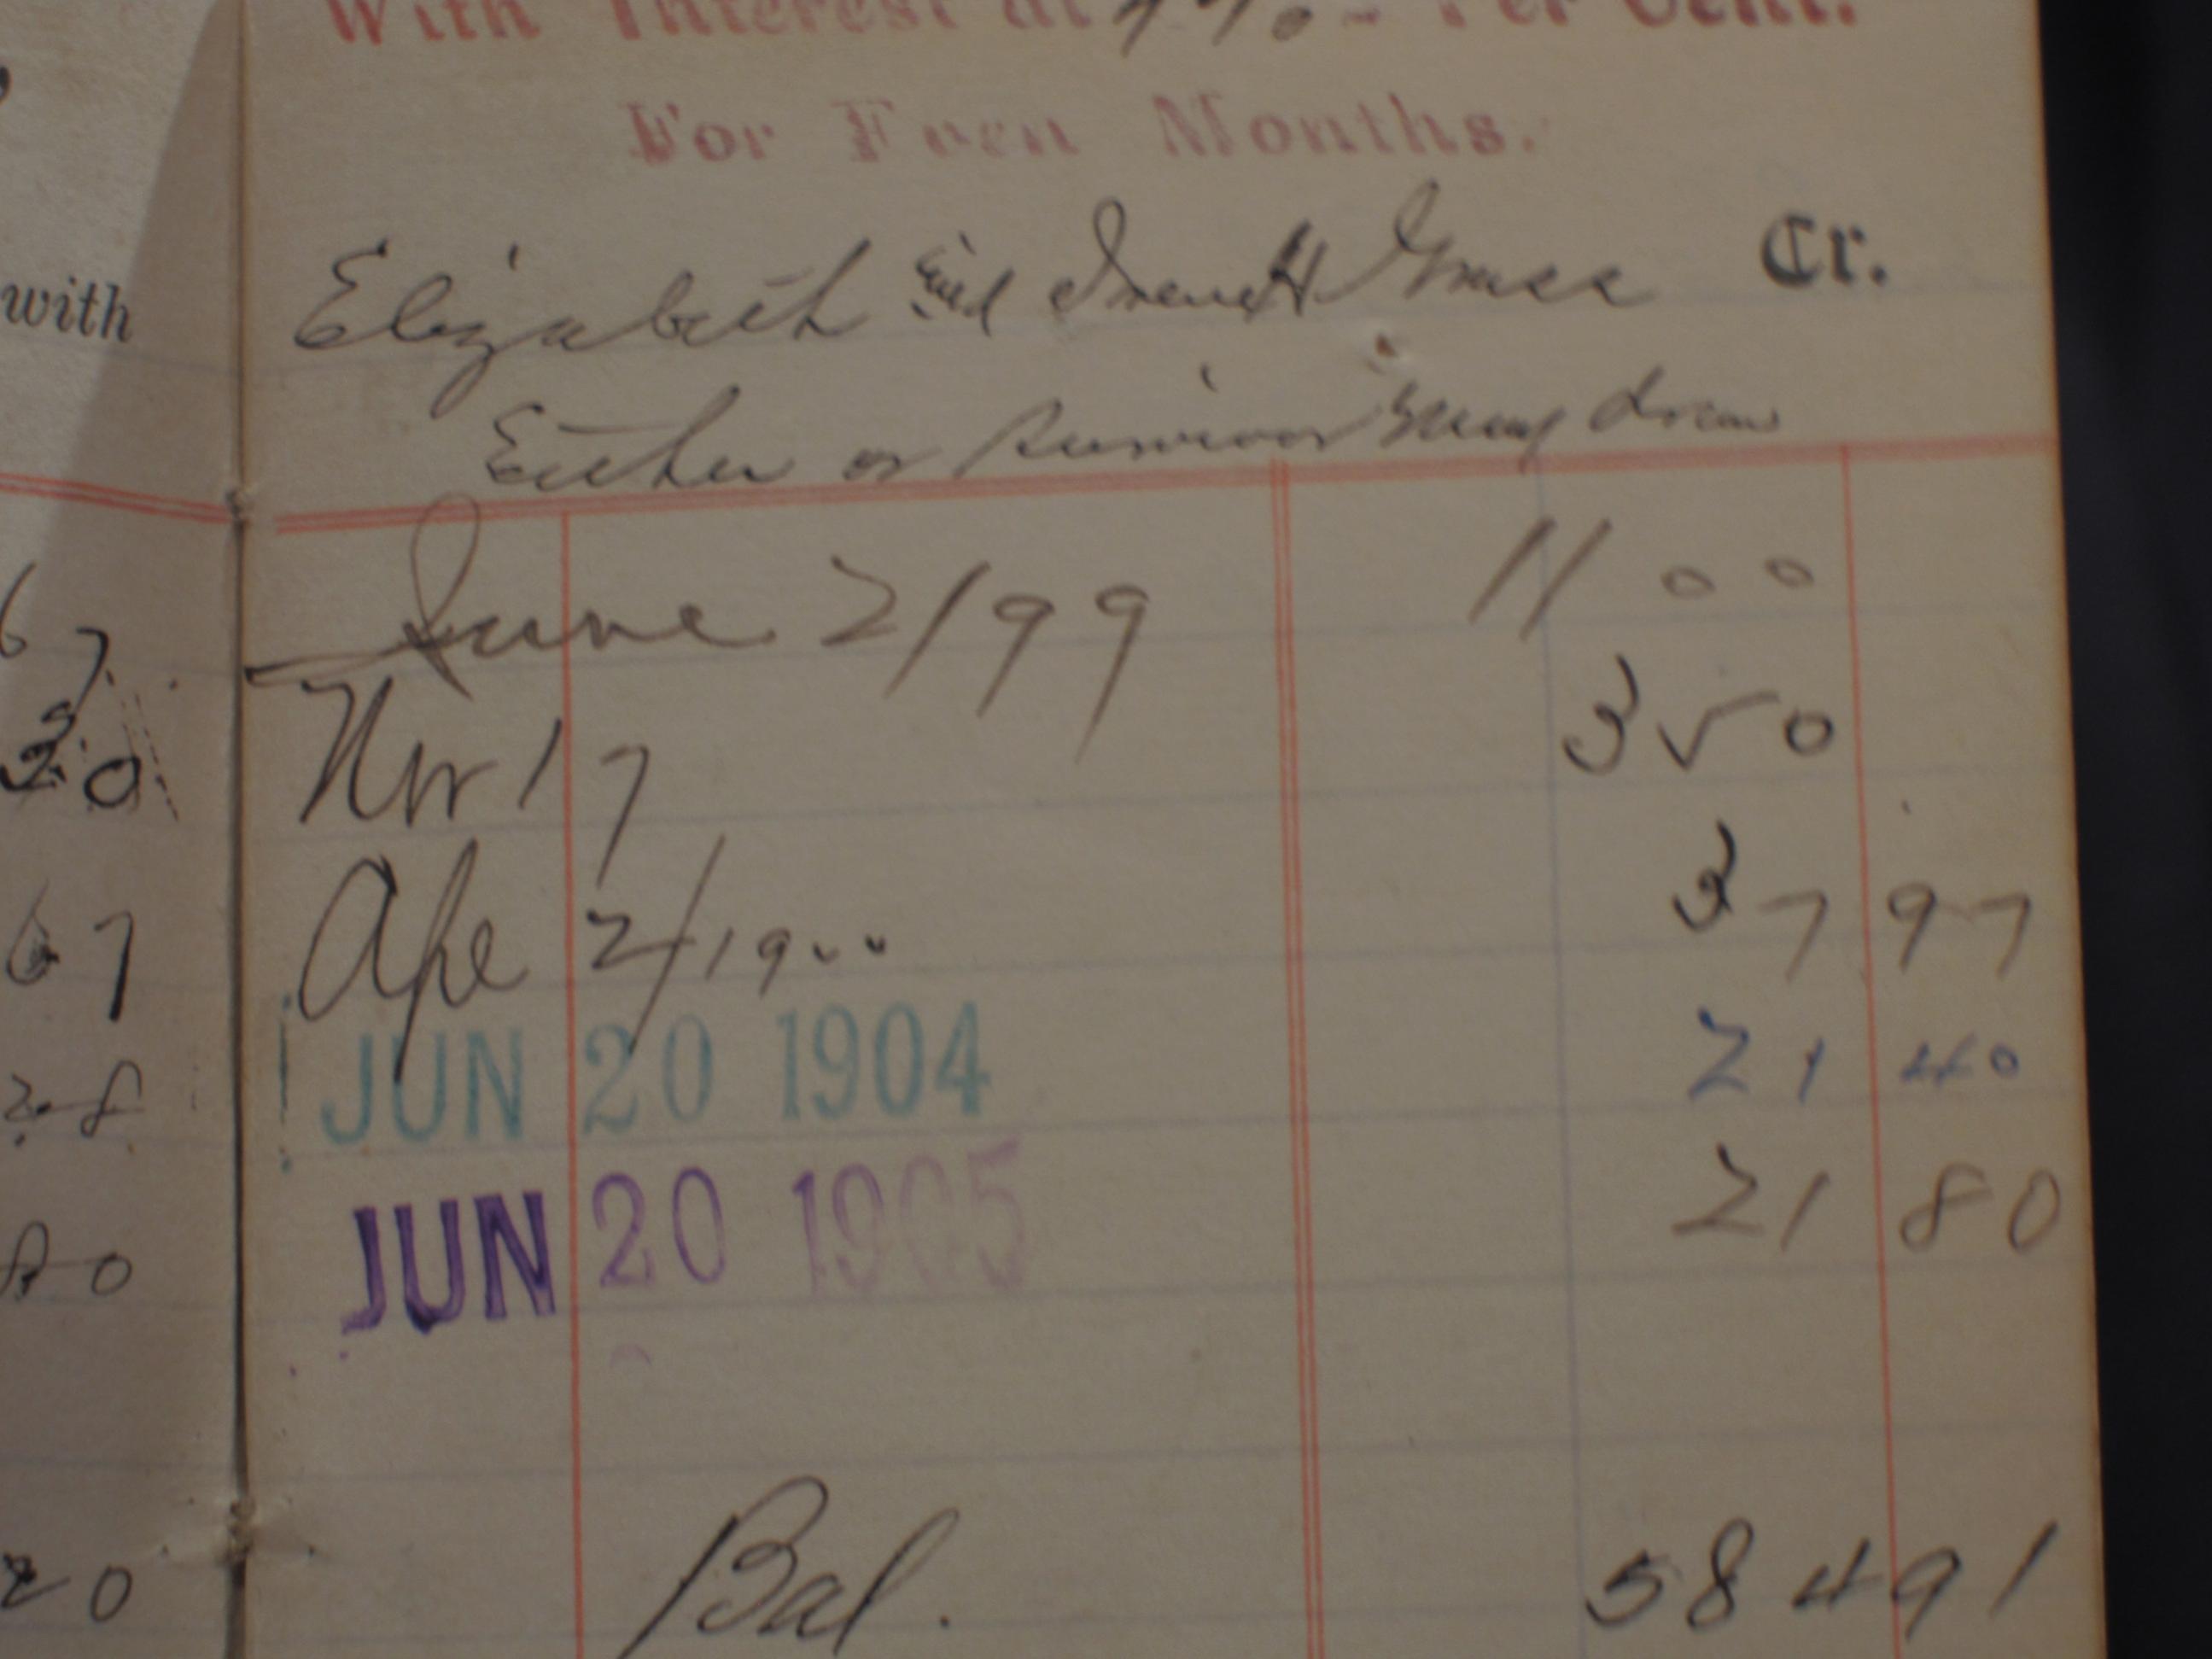 With Interest at 4% - Per Cent.
For Even Months.
Elizabeth and Irene H Cr.
with
Either or survivor may draw
June 2/99 11 00
Nov 17 350
67
30
Apr 2/1900 37 97
67
JUN 20 1904 21 40
28
JUN 20 1905 21 80
80
Bal. 584 91
20